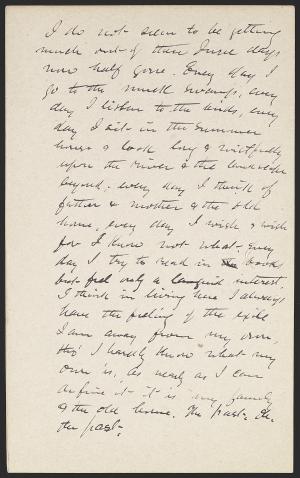 I do not seem to be getting
much out of these June days
now half gone. Every day I
go to the muck swamp, every
day I listen to the birds, every
day I sit in the summer
house & look long & wistfully
upon the river & the landscape
beyond, every day I think of
father & mother & the old
home, every day I wish & wish
for I know not what. Every
day I try to read in the books
but feel only a languid interest.
I think in living here I always
have the feeling of the exile
I am away from my own,
tho' I hardly know what my
own is, as near as I can
define it it is my family
& the old home. The past, Oh,
the past.